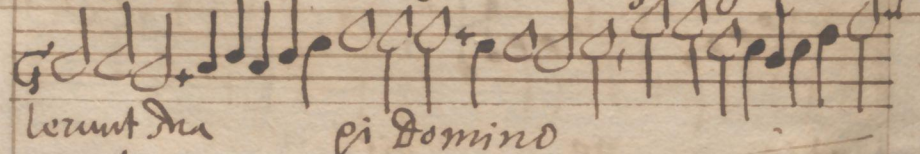 lerunt ei domino